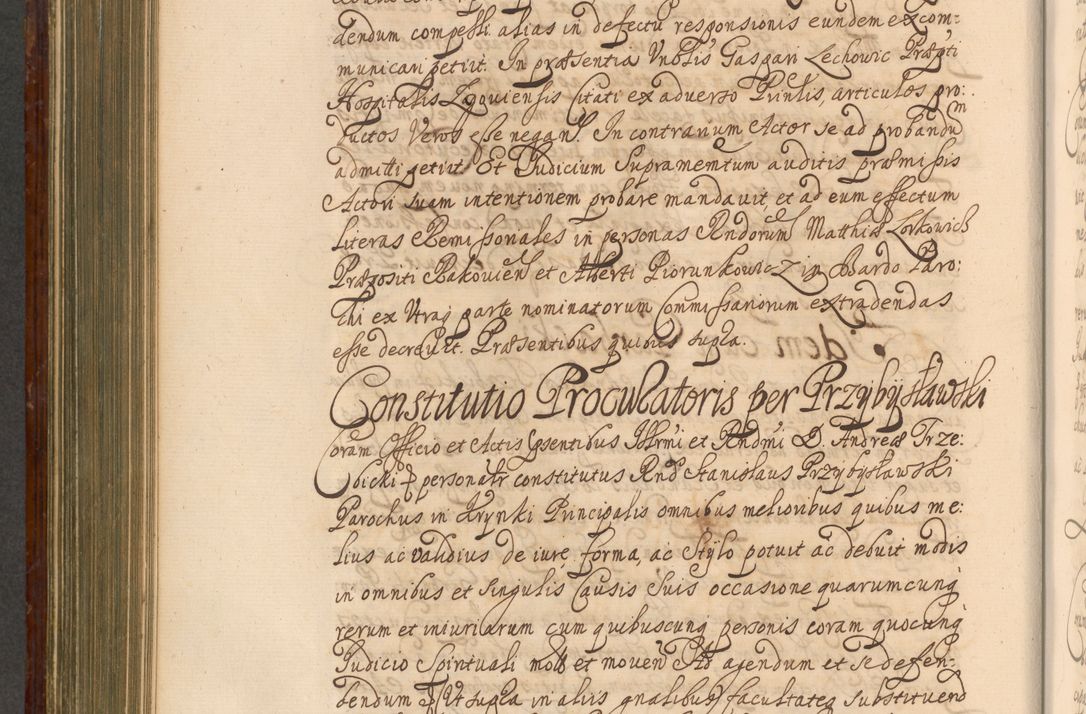 dendum compelli alias in defectu responsionis eundem excom:
municari petiit. In præsentia Vnblis Gaspari Lechowic Præpti
Hospitalis Zagoviensis Citati ex adverso Prinlis, articulos pro:
ductos Veros esse negant. In contrarium Actor se ad probandum
admitti petiit. Et Iudicium Supramemtum auditis præmissis
Actori suam intentionem probare mandavit, et ad eum effectum
literas Remissionales in personas Rndorum Matthiæ Lorkowich
Præpositi Bakovien et Alberti Piorunkowicz in Bardo Paro:
chi ex Utraq parte nominatorum Commissariorum extradendas
esse decrevit. Præsentibus quibus supra.
Constitutio Procuratoris per Przybysławski
Coram Officio et Actis præsentibus Illrmi et Rndmi D. Andreæ Trze:
bicki personaltr constitutus Rnd Stanislaus Przybysławski
Parochus in Krynki Principalis omnibus melioribus quibus me:
lius ac validius de iure, forma, ac Stylo potuit ac debuit modis
in omnibus et singulis Causis Suis occasione quarumcunq
rerum et iniuriarum cum quibuscunq personis coram quocunq
Iudicio Spirituali mot et moven Ad agendum et se defen:
dendum Ut supra in aliis gnalibus facultateq substituend